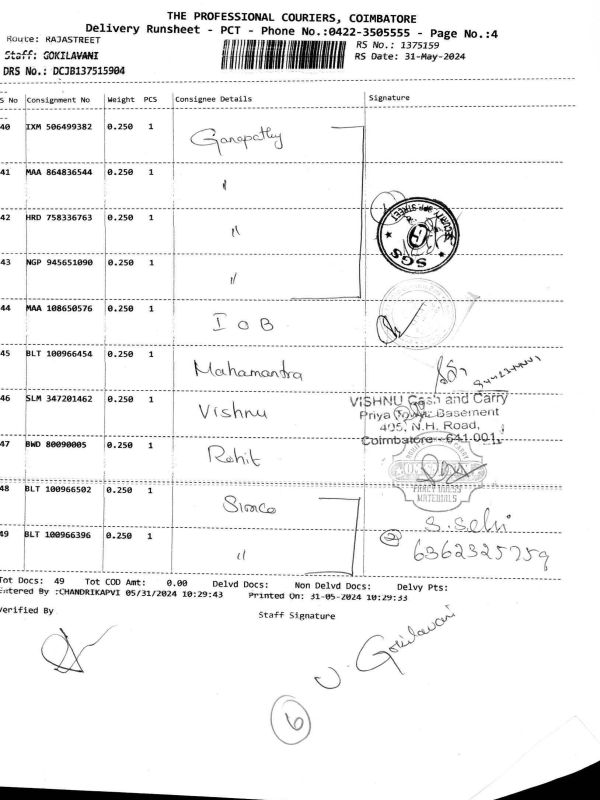 THE PROFESSIONAL COURIERS, COIMBATORE
Delivery Runsheet - PCT - Phone No.:0422-3505555 - Page No.:4
Route: RAJASTREET
RS No.: 1375159
Staff: GOKILAVANI
RS Date: 31-May-2024
DRS No.: DCJB137515904
S No Consignment No Weight PCS Consignee Details Signature
40 IXM 506499382 0.250 1 Ganapathy
41 MAA 864836544 0.250 1 "
42 HRD 758336763 0.250 1 "
SECURITY
STREET
SGS
43 NGP 945651090 0.250 1 "
44 MAA 108650576 0.250 1 IOB
45 BLT 100966454 0.250 1 Mahamantra
46 SLM 347201462 0.250 1 Vishnu
VISHNU Cash and Carry
Priya Tower Basement
495, N.H. Road,
Coimbatore - 641 001.
47 BWD 80090005 0.250 1 Rohit
FANCY DRESS
MATERIALS
48 BLT 100966502 0.250 1 Simco
S. Selvi
49 BLT 100966396 0.250 1 "
2
6362325759
Tot Docs: 49 Tot COD Amt: 0.00 Delvd Docs: Non Delvd Docs: Delvy Pts:
Entered By :CHANDRIKAPVI 05/31/2024 10:29:43 Printed On: 31-05-2024 10:29:33
Verified By
Staff Signature
V. Gokilavani
6